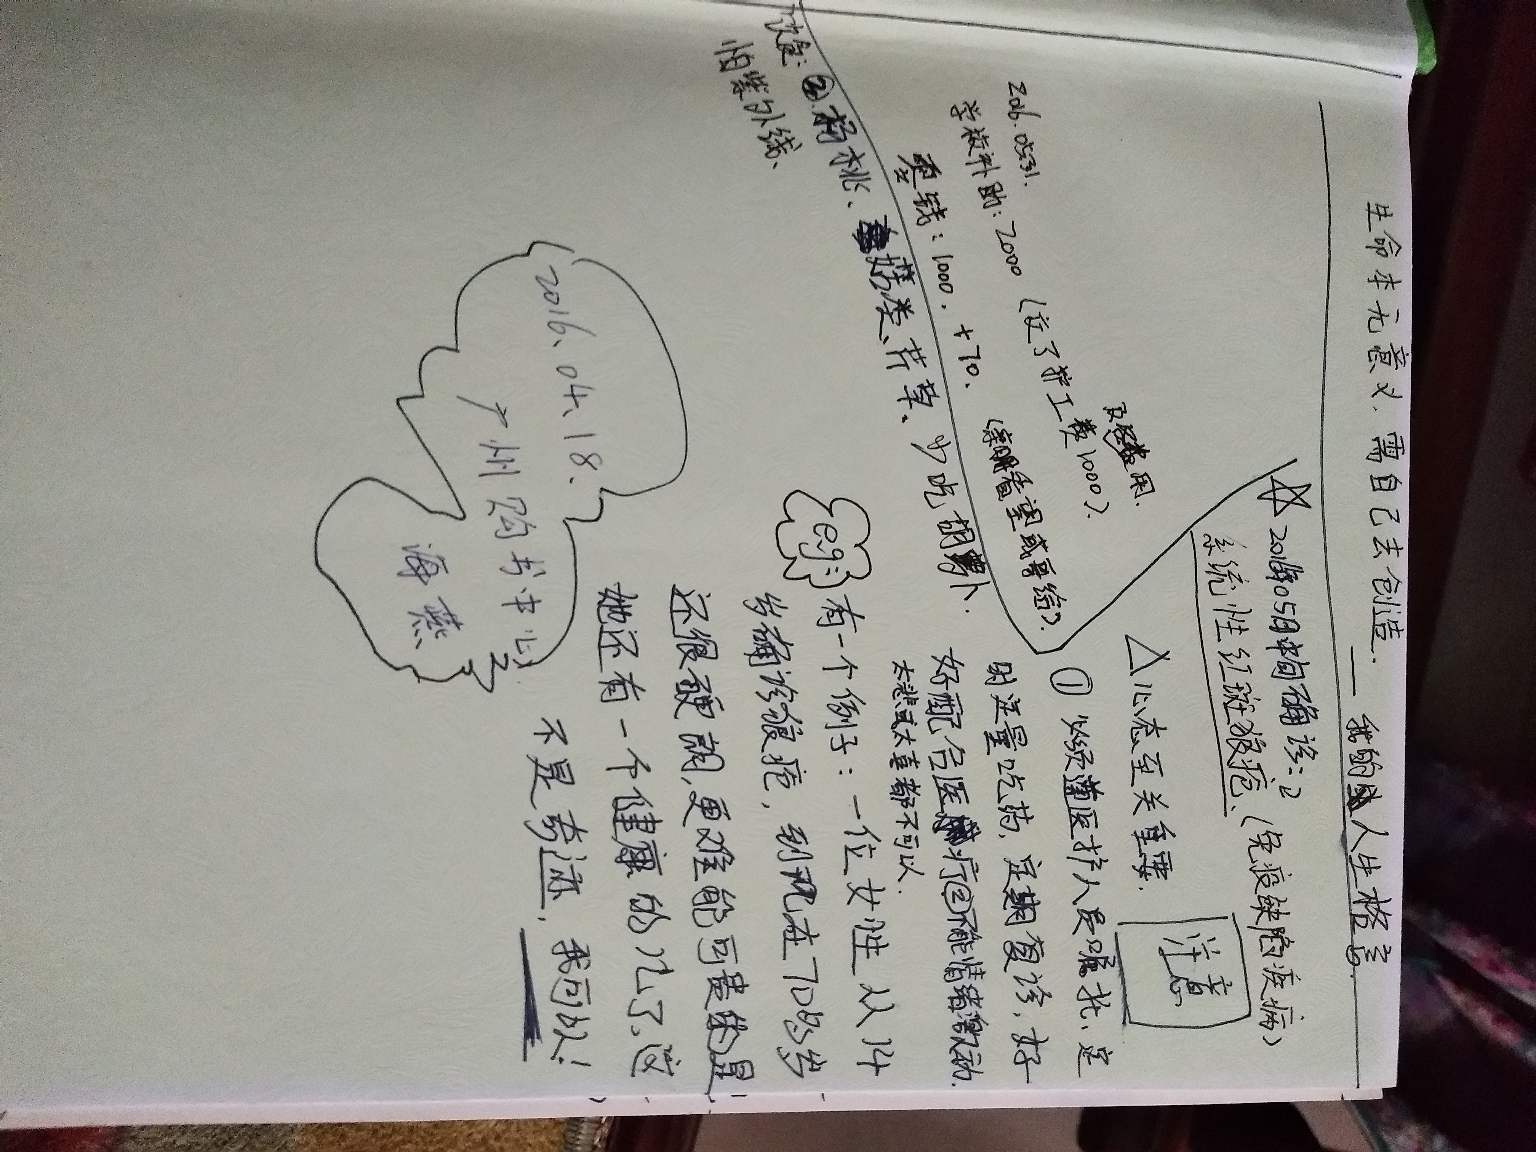 生命本无意义,需自己去创造.
——我的人生格言
☆2016年05月中旬确诊:
系统性红斑狼疮、(免疫缺陷疾病)
注意
△心态至关重要.
①必须遵医护人员嘱托、定
时定量吃药,定期复诊,好
好配合医疗②不能情绪激动.
太悲或太喜都不可以.
2016.0531.
学校补助:2000(交了护工费1000).
及餐费用
零钱:1000.+70.
饮食:③杨桃、菇类、芹草、少吃胡萝卜.
怕紫外线、
e.g:
有一个例子:一位女性从14
岁确诊狼疮,到现在70多岁
还很硬朗,更难能可贵的是
她还有一个健康的儿子、这
不是奇迹,我可以!
2016、04、18、
广州购书中心
海燕